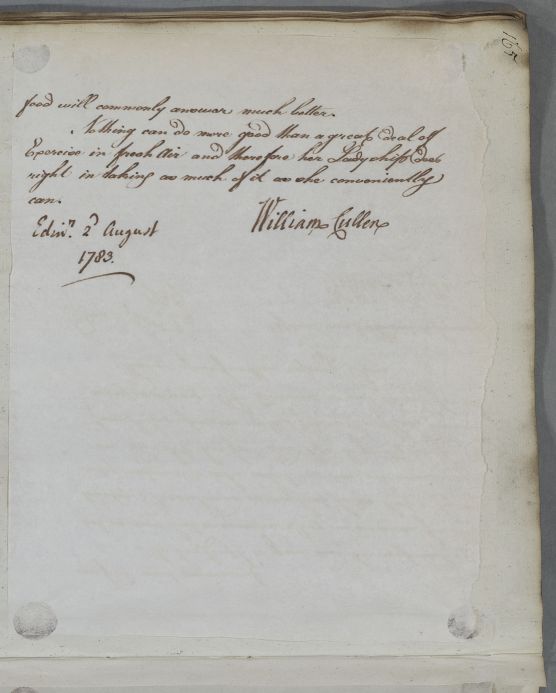 165
food will commonly answer much better.
Nothing can do more good than a great deal of
Exercise in fresh Air and therefore her Ladyship does
right in taking as much of it as she conveniently
can.
William Cullen
Edinr. 2d August
1783.